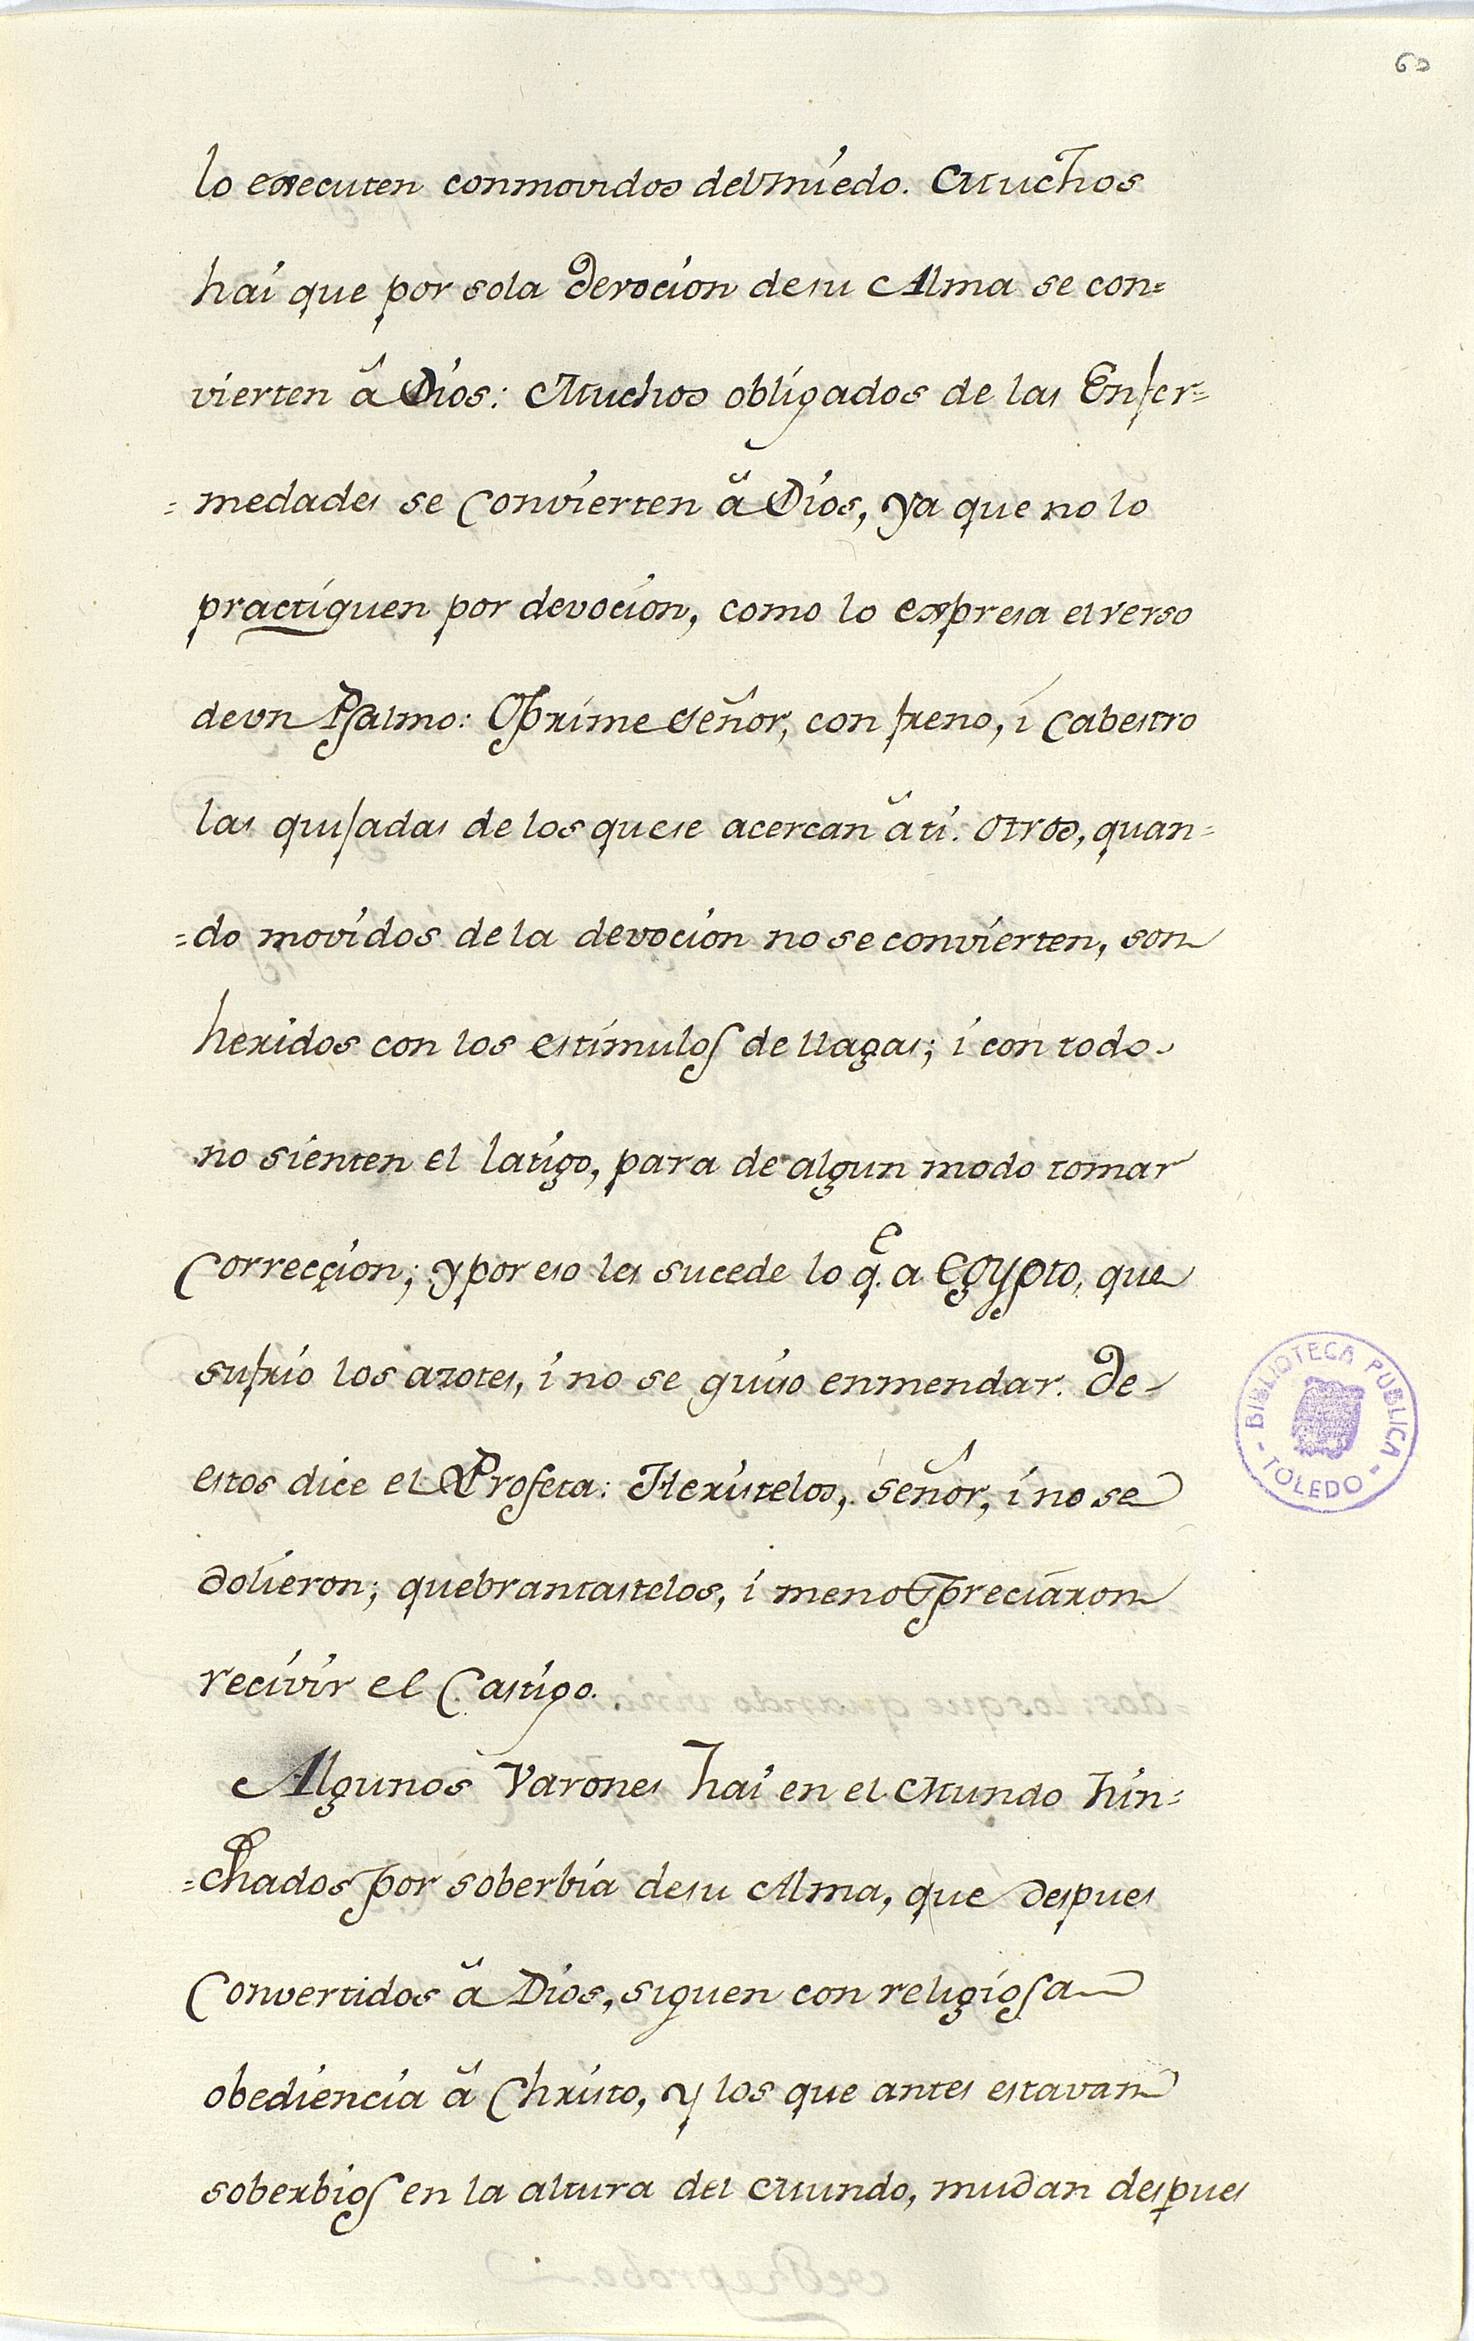 60
lo executen conmovidos del miedo. Muchos
hai que por sola devocion de su Alma se con=
vierten â Dios: Muchos obligados de las Enfer=
=medades se convierten â Dios, ya que no lo
practiquen por devocion, como lo expresa el verso
de vn Psalmo: Oprime Señor, con freno, i cabestro
las quijadas de los que se acercan â ti. Otros, quan=
=do movidos de la devocion no se convierten, son
heridos con los estimulos de llagas; i con todo
no sienten el latigo, para de algun modo tomar
Correcçion; y por eso les sucede lo q.e a Egypto, que
sufrio los azotes, i no se quiso enmendar. De
estos dice el Profeta: Heristelos, Señor, i no se
dolieron; quebrantastelos, i menospreciaron
recivir el Castigo.
Algunos Varones hai en el Mundo hin=
=chados por soberbia de su Alma, que despues
Convertidos â Dios, siguen con religiosa
obediencia â Christo, y los que antes estavan
soberbios en la altura del Mundo, mudan despues
BIBLIOTECA PUBLICA
- TOLEDO -